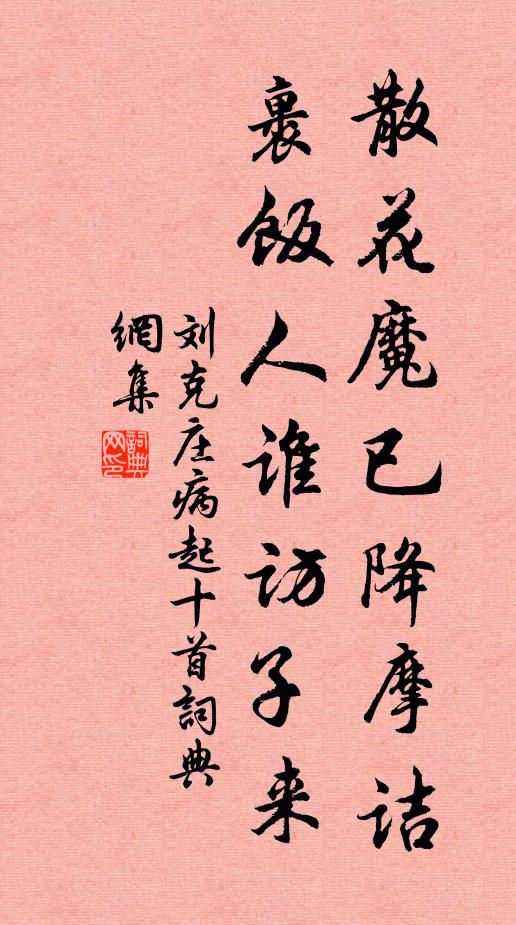 散花魔已降摩诘
裹飯人谁訪子来
刘克庄病起十首詞典
網集
詞典
网印